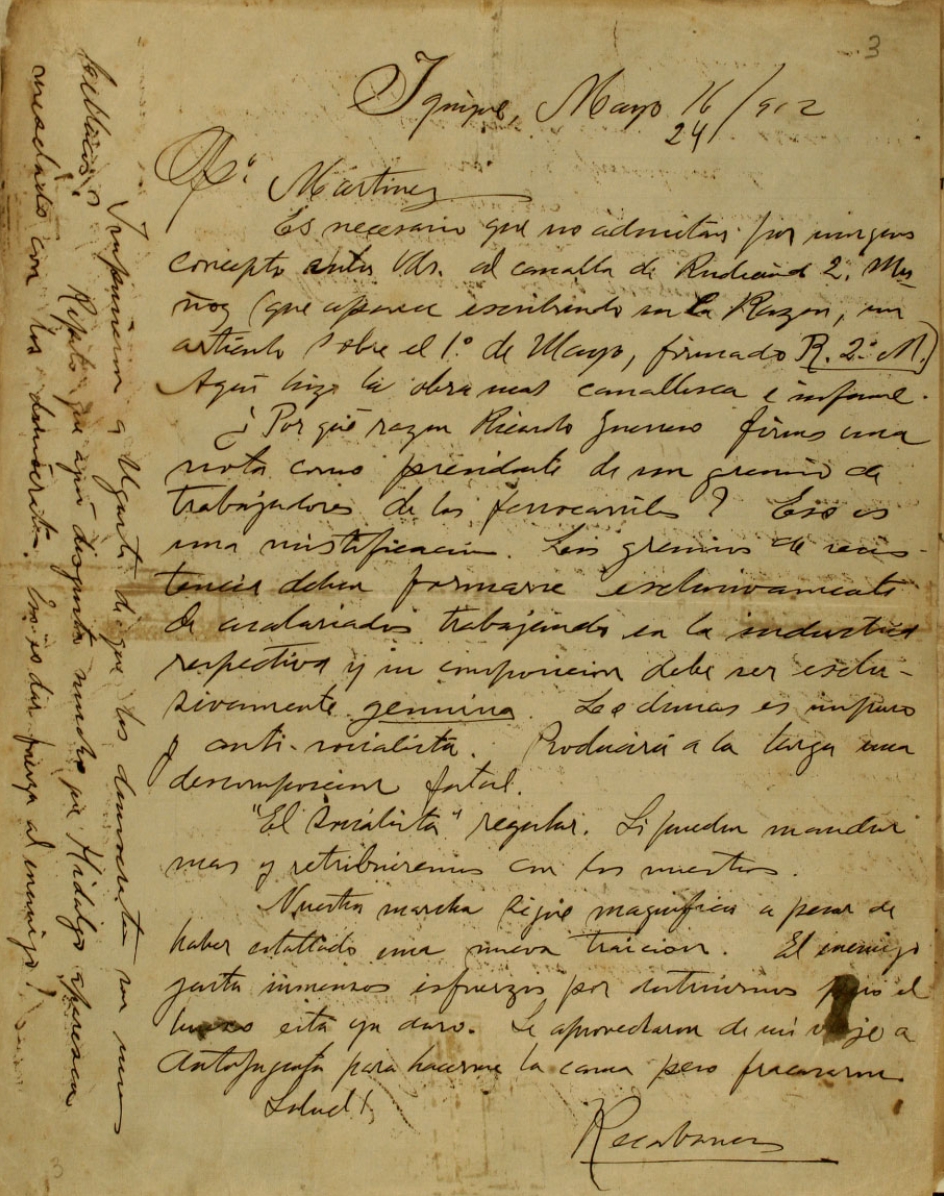 3
Iquique, Mayo 16/912
24
Co. Martinez
Es necesario que no admitan por ningun
concepto entre Uds. al canalla de Rudecindo 2º. Mu-
ñoz (que aparece escribiendo en La Razon, un
artículo sobre el 1º. de Mayo, firmado R. 2º. M.)
Aqui hizo la obra mas canallesca e infame.
¿Por qué razon Ricardo Guerrero firma una
nota como presidente de un gremio de
trabajadores de los ferrocarriles? Eso es
una mistificacion. Los gremios de resis-
tencia deben formarse esclusivamente
de asalariados trabajando en la industria
respectiva y su composicion debe ser esclu-
sivamente genuina. Lo demas es impuro
y anti-socialista. Producirá a la larga una
descomposicion fatal.
"El Socialista" regular. Si pueden mandar
mas y retribuiremos con los nuestros.
Nuestra marcha sigue magnifica a pesar de
haber estallado una nueva traicion. El enemigo
gasta inmensos esfuerzos por destruirnos pero el
hueso está ya duro. Se aprovecharon de mi viaje a
Antofagasta para hacerme la cama pero fracasaron
Salud!
Recabarren
a Ugarte di que los demócratas son unos
Repito que aquí disgusta mucho que Hidalgo aparezca
mezclado con los demócratas. Eso es dar fuerza al enemigo!
3